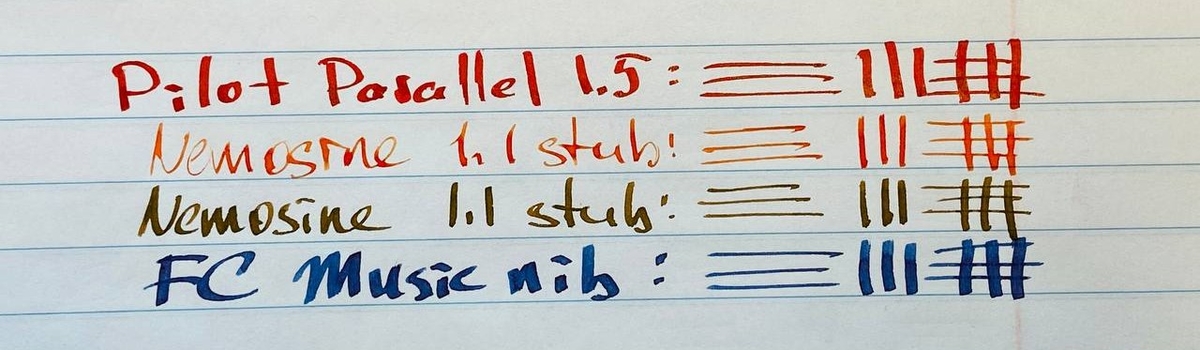 Pilot Parallel 1.5:
Nemosine 1.1 stub:
Nemosine 1.1 stub:
FC Music nib: